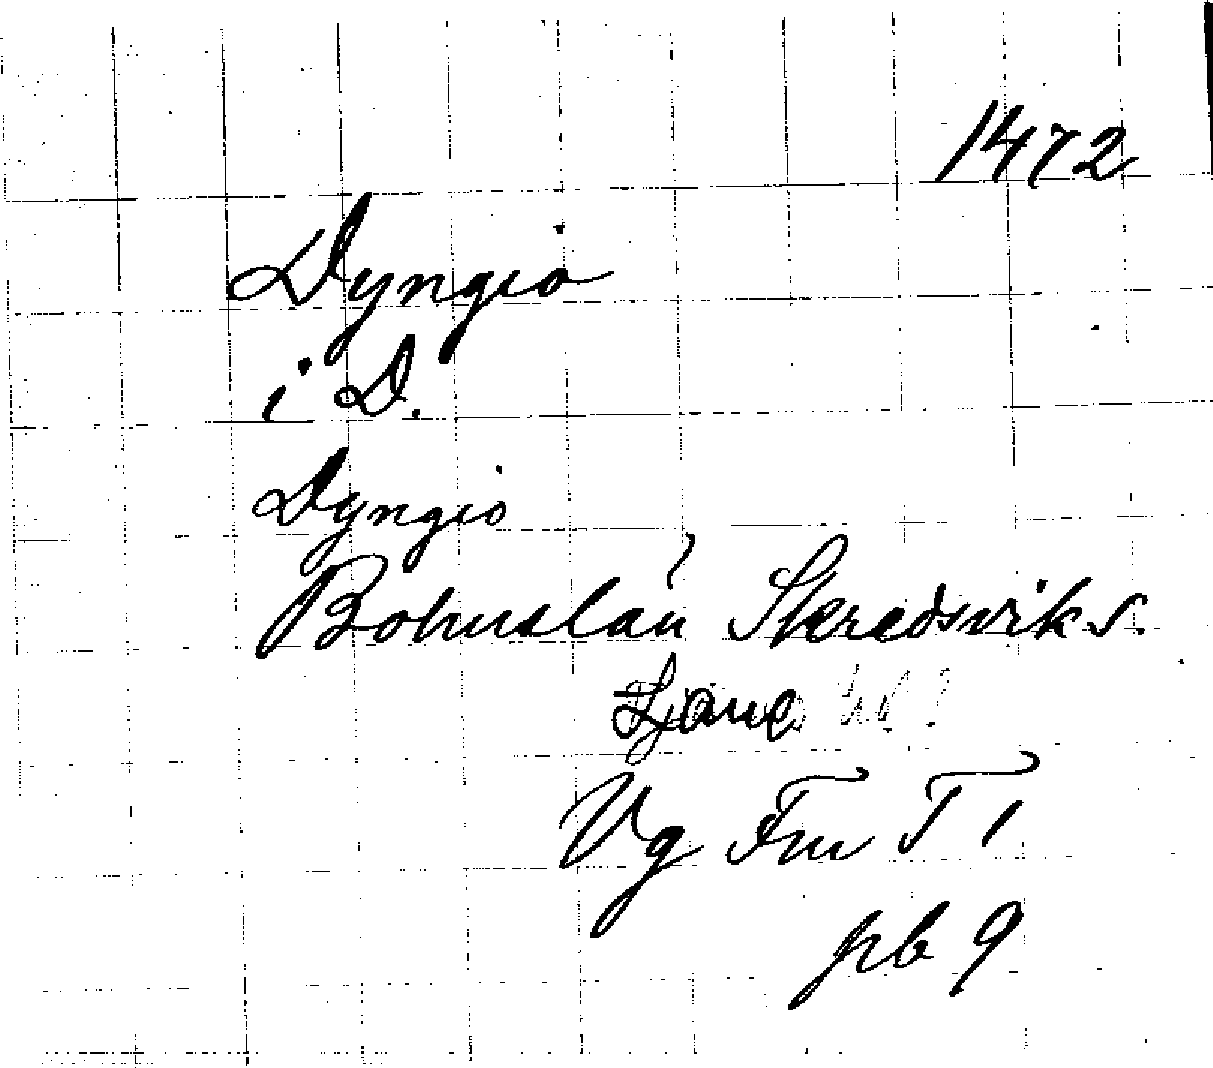 1472
Dyngio
i D.
Dyngio
Bohuslän Skredsviks s.
Lane
Vg Fm T 1
pb 9